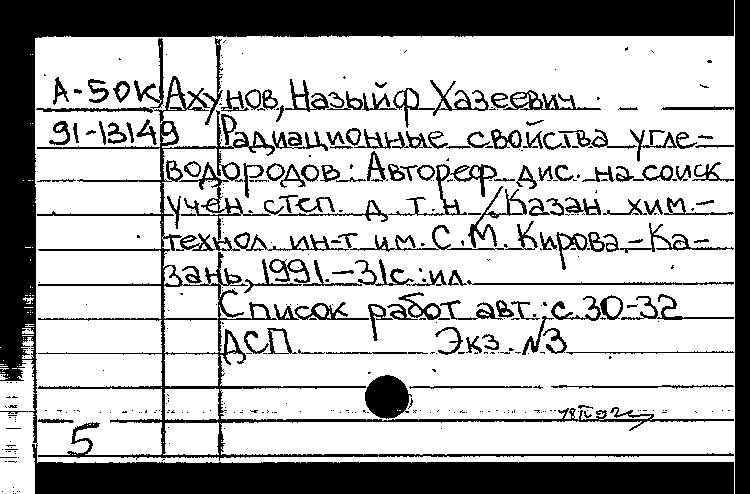 А-50К Ахунов, Назыйф Хазеевич
91-13149 Радиационные свойства угле-
водородов: Автореф. дис. на соиск
учен. степ. д. т. н. /Казан. хим.-
технол. ин-т им. С. М. Кирова.-Ка-
зань, 1991.-31с.:ил.
Список работ авт.: с. 30-32
ДСП. Экз. №3
5